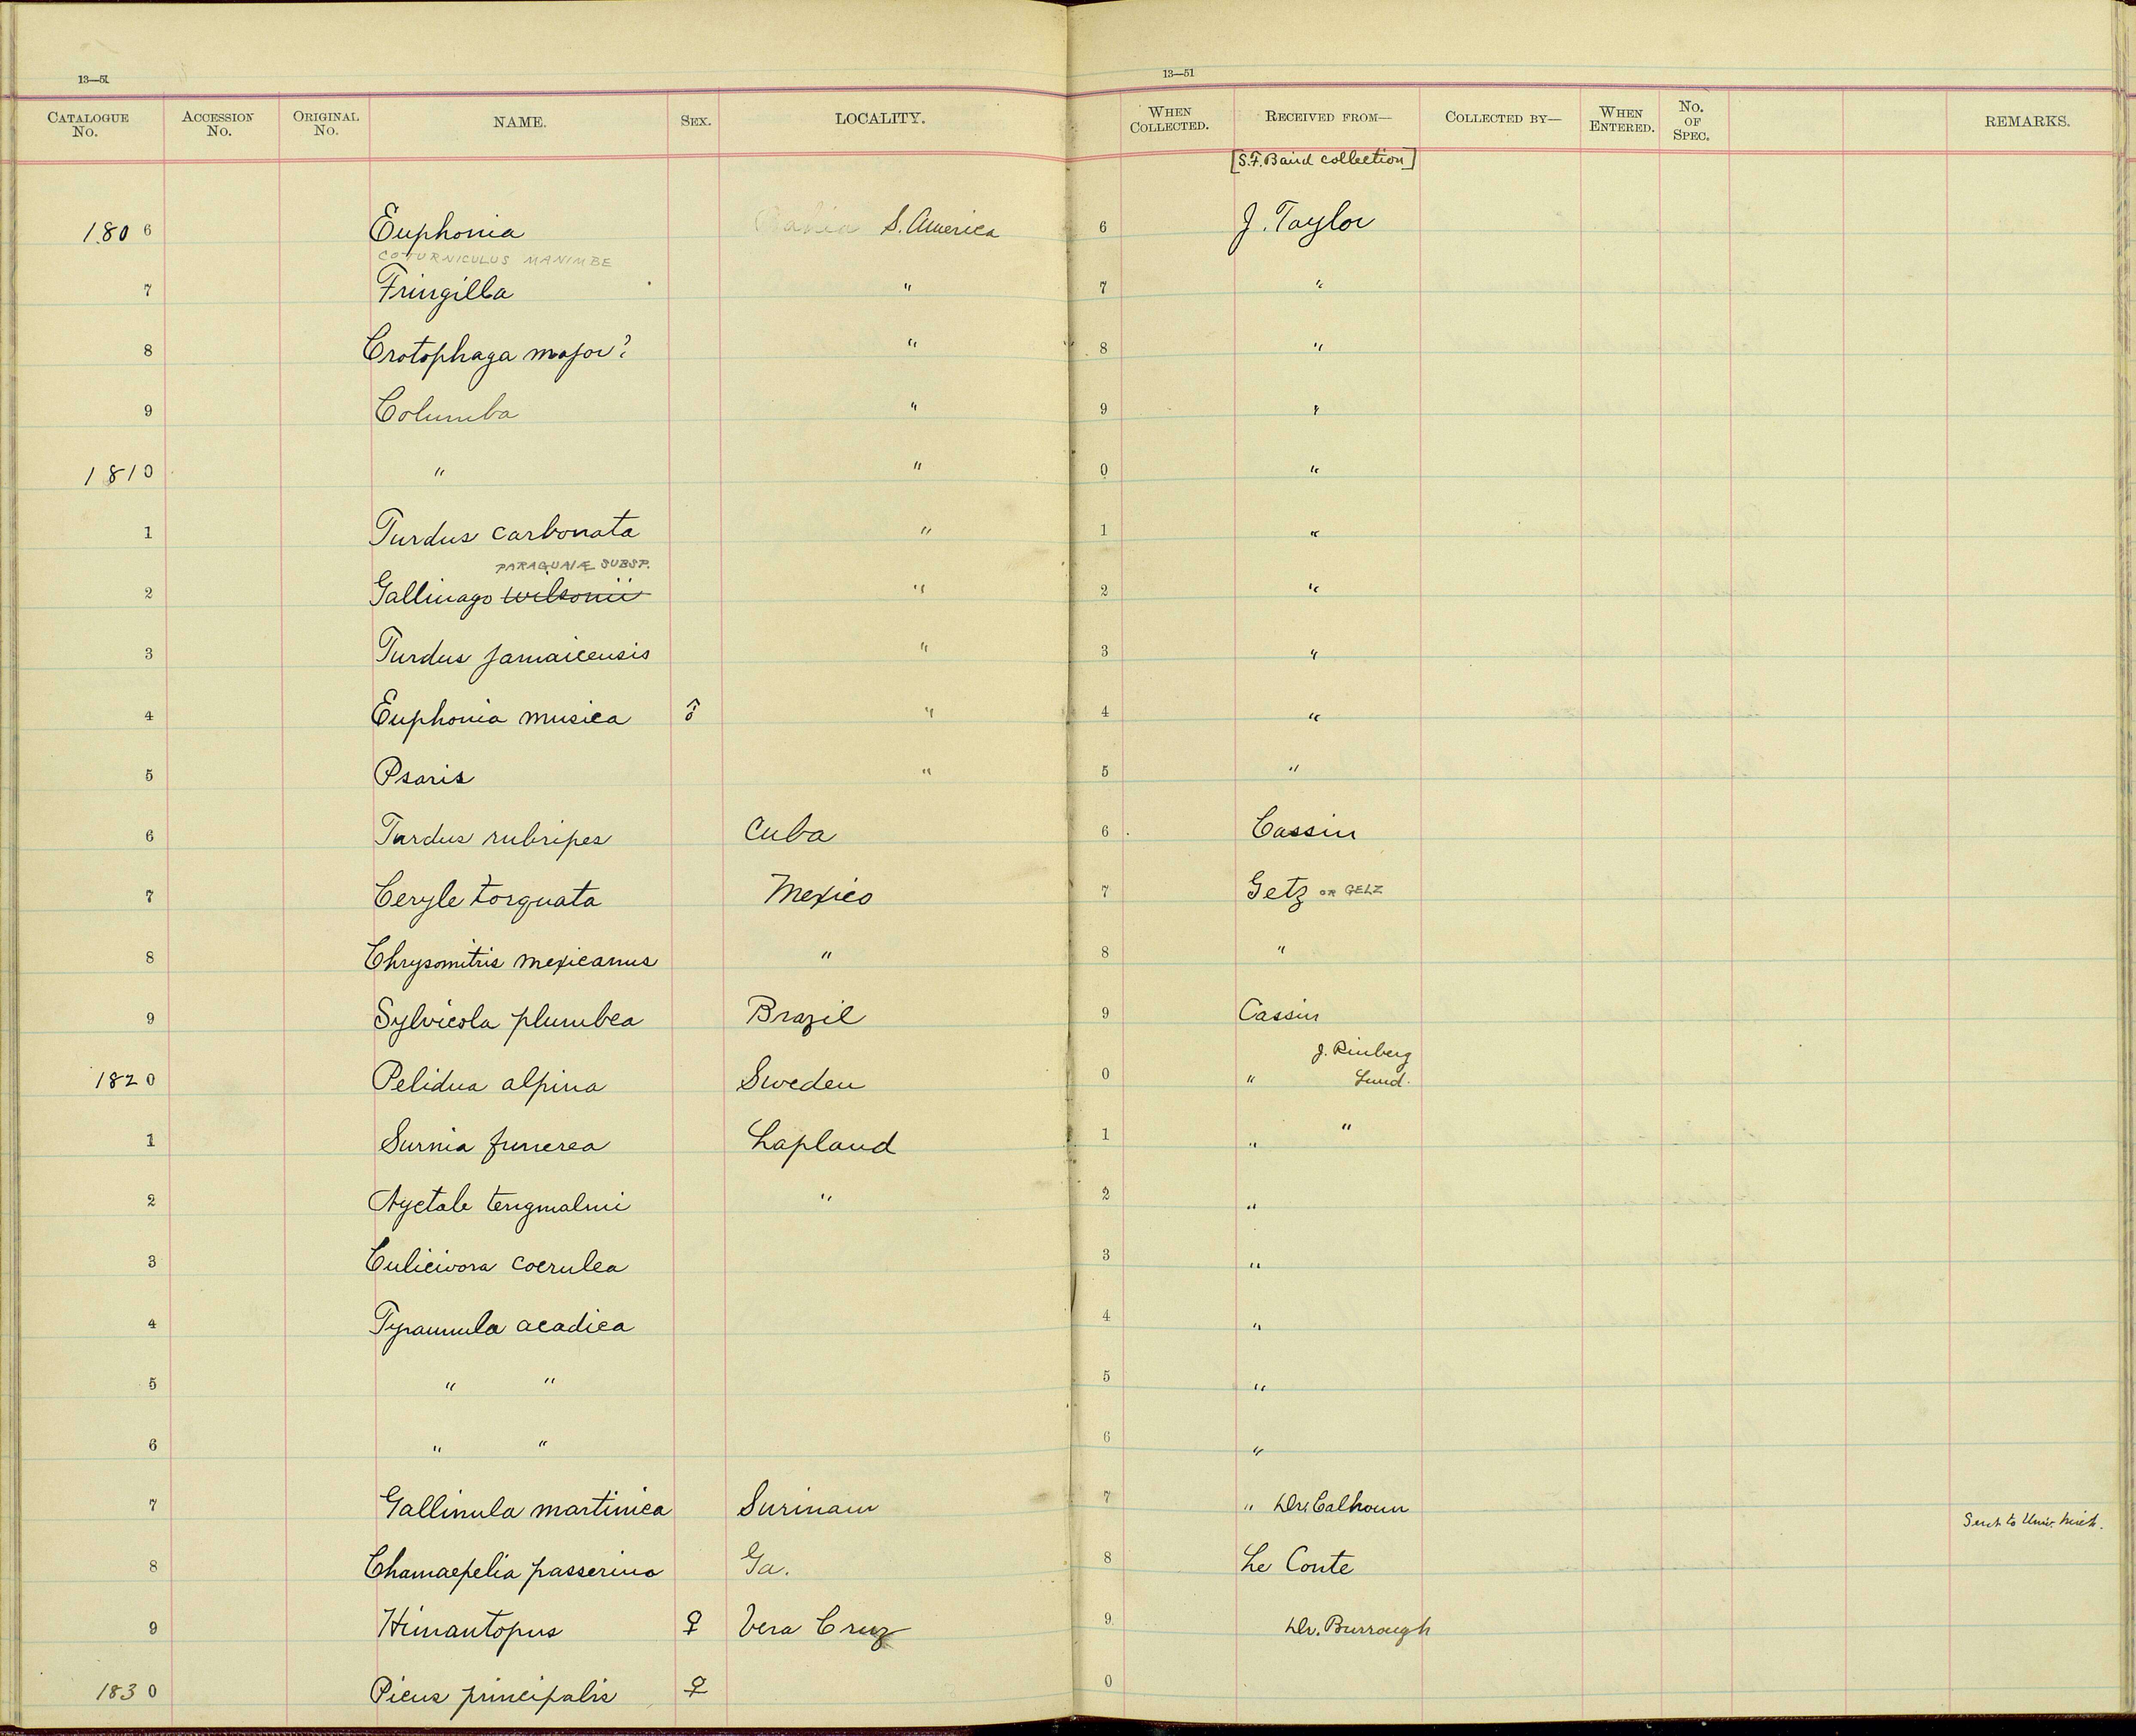 13—51 13—51
CATALOGUE No. ACCESSION No. ORIGINAL No. NAME. SEX. LOCALITY. WHEN COLLECTED. RECEIVED FROM— COLLECTED BY— WHEN ENTERED. No. OF SPEC. REMARKS.
[S.F. Baird collection]
1806 Euphonia Bahia S. America 6 J. Taylor
COTURNICULUS MANIMBE
7 Fringilla " 7 "
8 Crotophaga major? " 8 "
9 Columba " 9 "
1810 " " 0 "
1 Turdus carbonata " 1 "
PARAGUAIÆ SUBSP.
2 Gallinago wilsonii " 2 "
3 Turdus jamaicensis " 3 "
4 Euphonia musica ♂ " 4 "
5 Psaris " 5 "
6 Turdus rubripes Cuba 6 Cassin
7 Ceryle torquata Mexico 7 Getz OR GELZ
8 Chrysomitris mexicanus " 8 "
9 Sylvicola plumbea Brazil 9 Cassin
J. Rinberg
1820 Pelidna alpina Sweden 0 " Lund.
1 Surnia funerea Lapland 1 " "
2 Nyctale tengmalmi " 2 "
3 Culicivora coerulea 3 "
4 Tyrannula acadica 4 "
5 " " 5 "
6 " " 6 "
7 Gallinula martinica Surinam 7 " Dr. Calhoun Sent to Univ. Mich.
8 Chamaepelia passerina Ga. 8 Le Conte
9 Himantopus ♀ Vera Cruz 9 Dr. Burrough
1830 Picus principalis ♀ 0